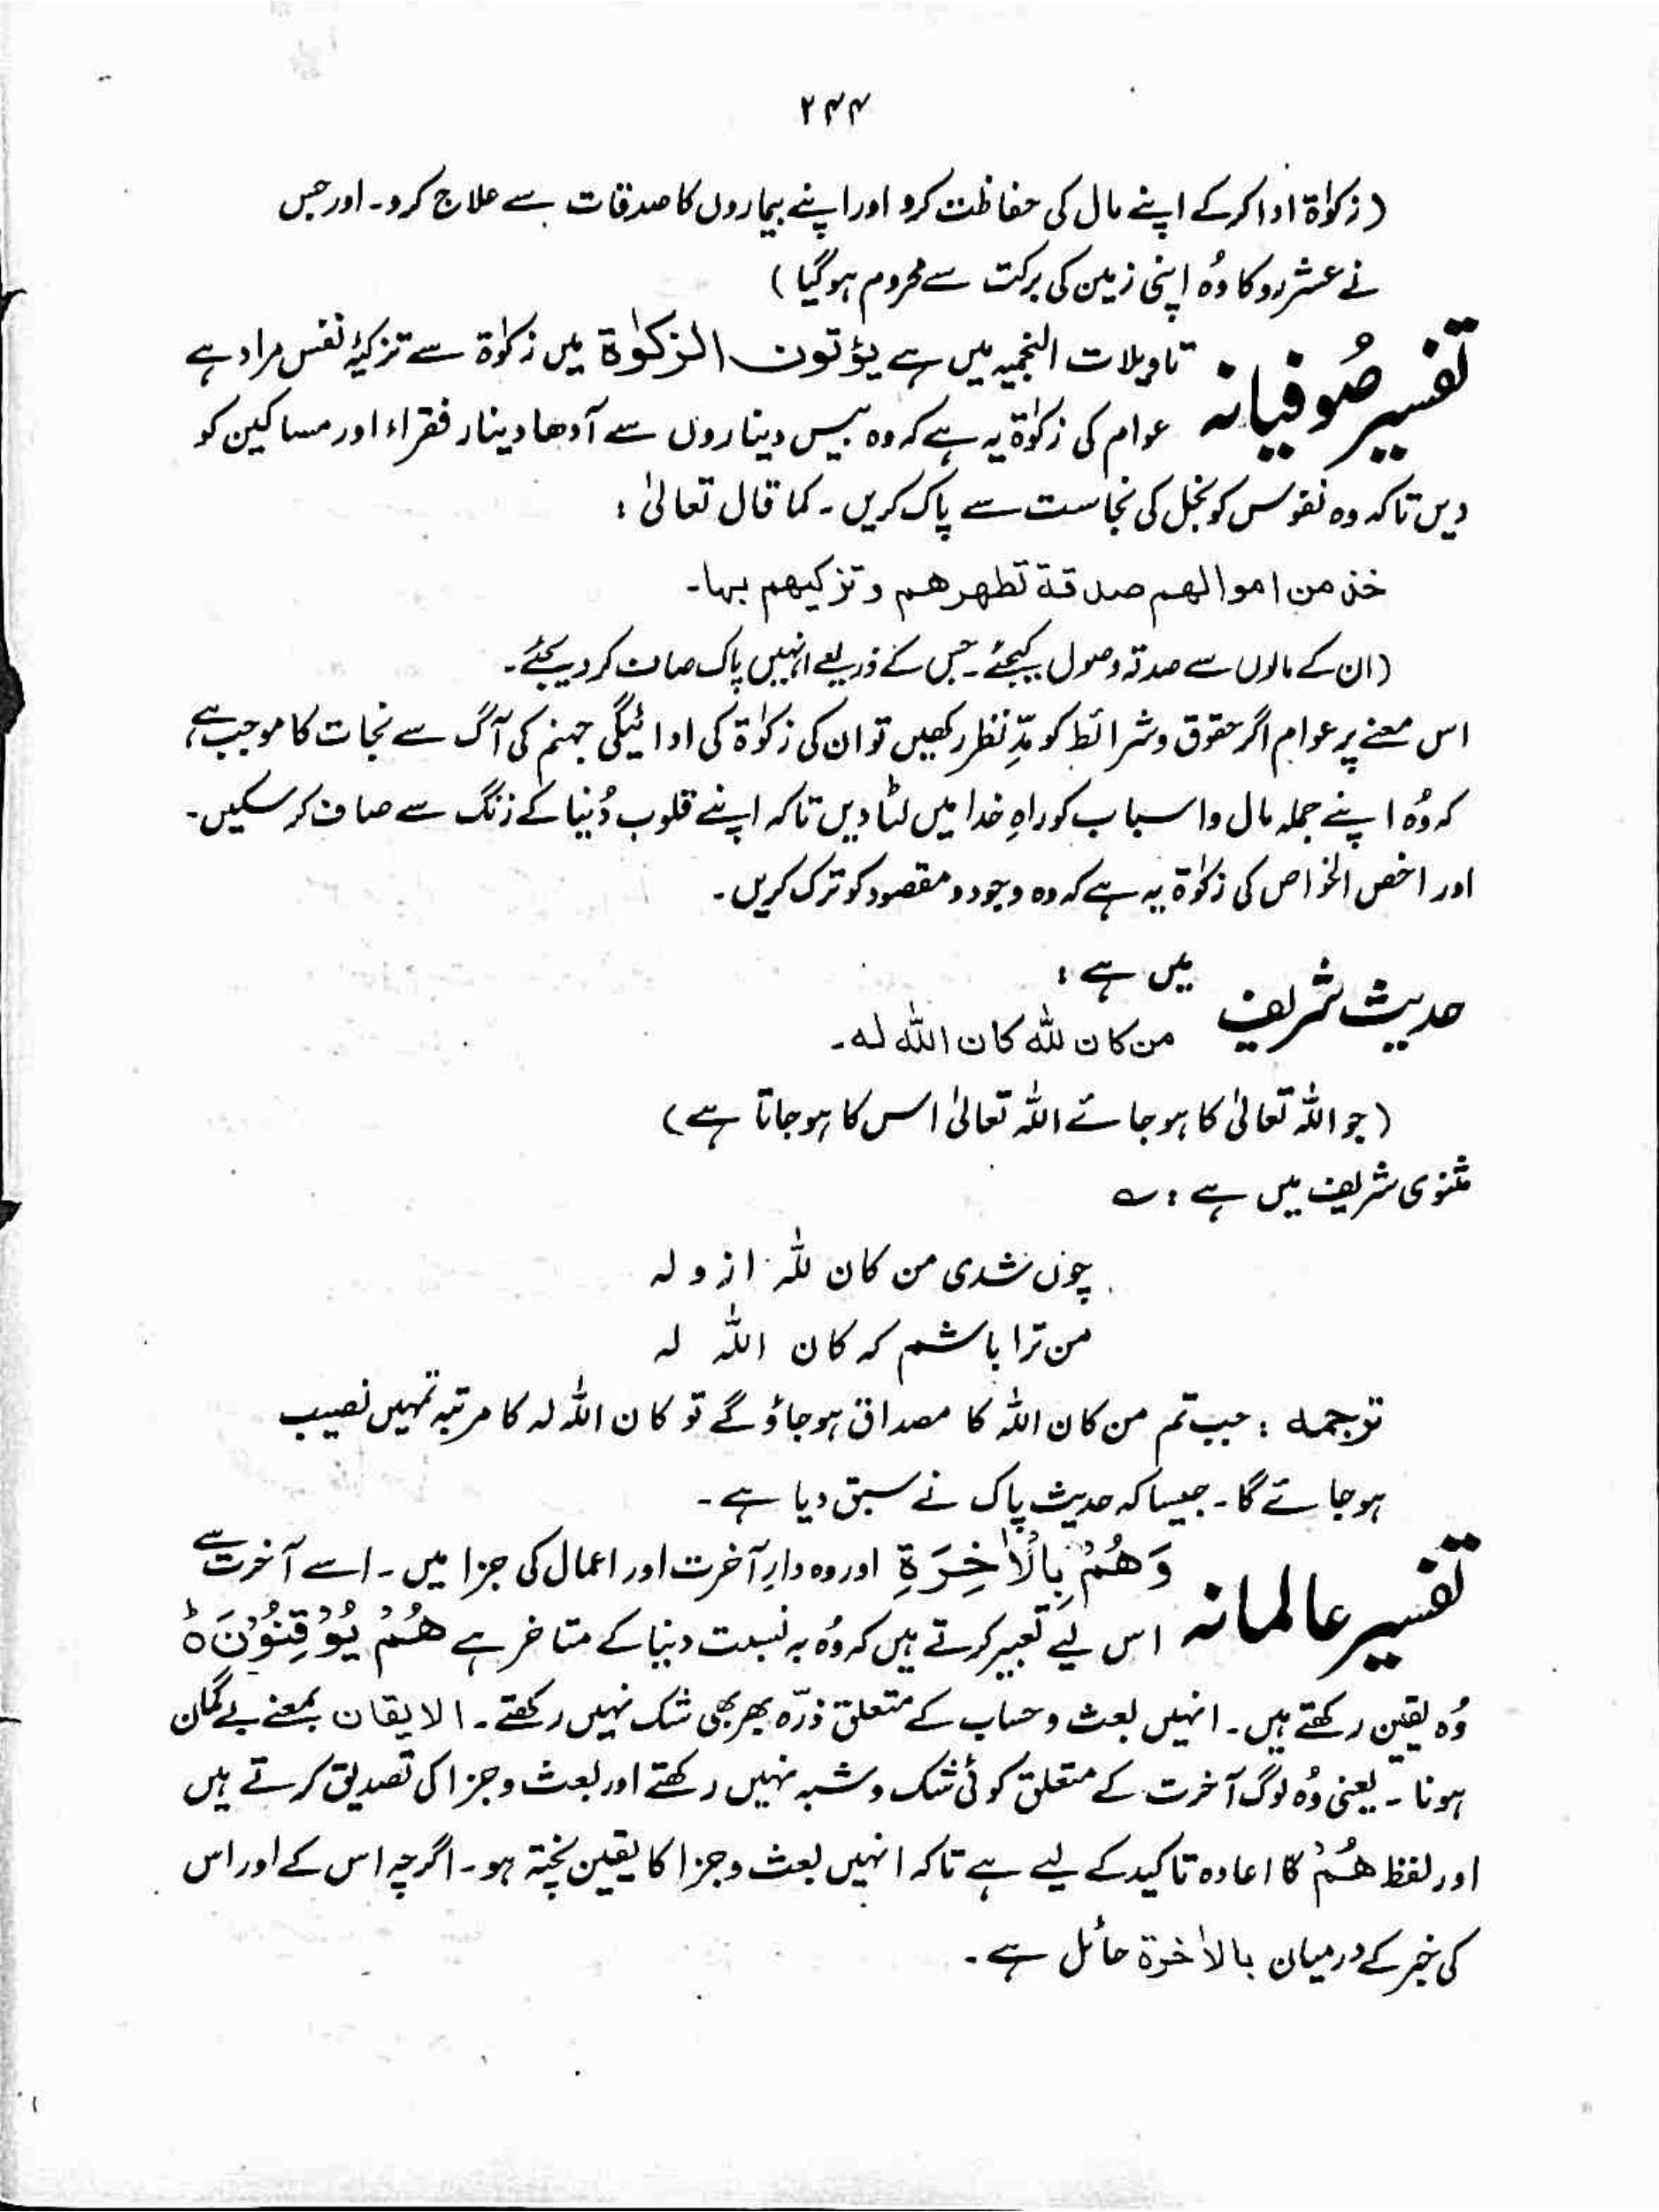 ۲۴۴
(زکوٰۃ ادا کرکے اپنے مال کی حفاظت کرو اور اپنے بیماروں کا صدقات سے علاج کرو۔ اور جس
نے عشر روکا وُہ اپنی زمین کی برکت سے محروم ہوگیا)
تفسیر صُوفیانہ تاویلات النجمیہ میں ہے یؤتون الزکوٰۃ میں زکوٰۃ سے تزکیۂ نفس مراد ہے
عوام کی زکوٰۃ یہ ہے کہ وہ بیس دیناروں سے آدھا دینار فقراء اور مساکین کو
دیں تاکہ وہ نفوس کو بخل کی نجاست سے پاک کریں۔ کما قال تعالیٰ :
خذ من اموالھم صدقۃ تطھرھم و تزکیھم بہا۔
(ان کے مالوں سے صدقہ وصول کیجئے۔ جس کے ذریعے انہیں پاک صاف کر دیجئے۔
اس معنے پر عوام اگر حقوق و شرائط کو مدِّ نظر رکھیں تو ان کی زکوٰۃ کی ادائیگی جہنم کی آگ سے نجات کا موجب ہے،
کہ وُہ اپنے جملہ مال و اسباب کو راہِ خدا میں لٹا دیں تاکہ اپنے قلوب دُنیا کے زنگ سے صاف کر سکیں۔
اور اخص الخواص کی زکوٰۃ یہ ہے کہ وہ وجود و مقصود کو ترک کریں۔
حدیث شریف میں ہے :
من کان للّٰہ کان اللّٰہ لہ۔
(جو اللّٰہ تعالیٰ کا ہو جائے اللّٰہ تعالیٰ اس کا ہو جاتا ہے)
مثنوی شریف میں ہے : ؎
چوں شدی من کان للّٰہ از ولہ
من ترا باشم کہ کان اللّٰہ لہ
ترجمہ : جب تم من کان اللّٰہ کا مصداق ہو جاؤ گے تو کان اللّٰہ لہ کا مرتبہ تمہیں نصیب
ہو جائے گا۔ جیسا کہ حدیث پاک نے سبق دیا ہے۔
تفسیر عالمانہ وَھُمْ بِالْاٰخِرَۃِ اور وہ دارِ آخرت اور اعمال کی جزا میں۔ اسے آخرت سے
اس لیے تعبیر کرتے ہیں کہ وُہ بہ نسبت دنیا کے متاخر ہے ھُمْ یُوْقِنُوْنَ ہ ط
وُہ یقین رکھتے ہیں۔ انہیں بعث و حساب کے متعلق ذرّہ بھر بھی شک نہیں رکھتے۔ الایقان بمعنے بے گمان
ہونا۔ یعنی وُہ لوگ آخرت کے متعلق کوئی شک و شبہ نہیں رکھتے اور بعث و جزا کی تصدیق کرتے ہیں
اور لفظ ھُمْ کا اعادہ تاکید کے لیے ہے تاکہ انہیں بعث و جزا کا یقین پختہ ہو۔ اگرچہ اس کے اور اس
کی خبر کے درمیان بالاٰخرۃ حائل ہے۔